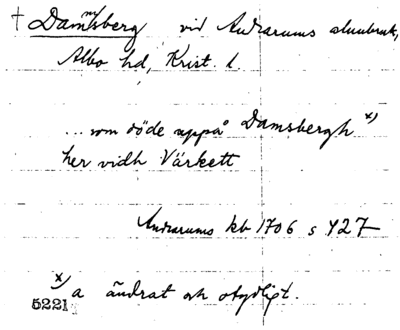 † Dammsberg vid Andrarums alunbruk,
Albo hd, Krist. l.
... som döde uppå Damsbergh x)
her vidh Värkett
Andrarums kb 1706 s 427
x) a ändrat och otydligt.
5221